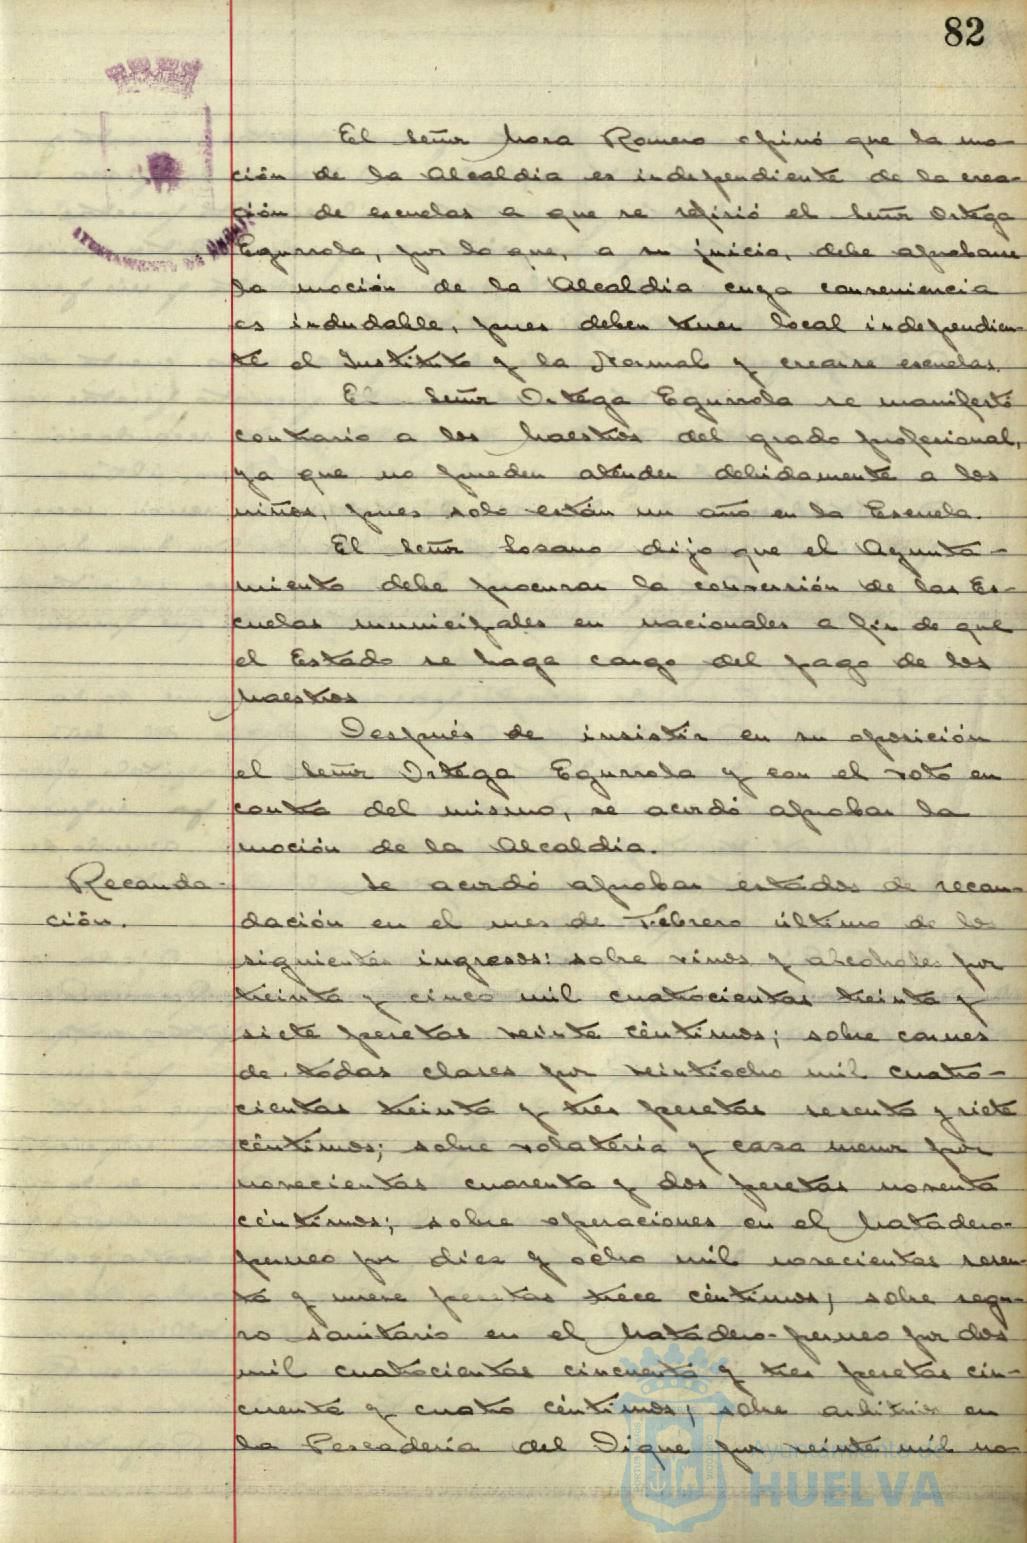 82
El Señor Mora Romero opinó que la mo-
ción de la Alcaldía es independiente de la crea-
ción de escuelas a que se refirió el Señor Ortega
Egurrola, por lo que, a su juicio, debe aprobarse
la moción de la Alcaldía cuya conveniencia
es indudable, pues deben tener local independien-
te el Instituto y la Normal y crearse escuelas.
El Señor Ortega Egurrola se manifestó
contrario a los Maestros del grado profesional,
ya que no pueden atender debidamente a los
niños, pues solo están un año en la Escuela.
El Señor Lozano dijo que el Ayunta-
miento debe procurar la conversión de las Es-
cuelas municipales en nacionales a fin de que
el Estado se haga cargo del pago de los
Maestros
Después de insistir en su oposición
el Señor Ortega Egurrola y con el voto en
contra del mismo, se acordó aprobar la
moción de la Alcaldía.
Recauda-
ción.
Se acordó aprobar estados de recau-
dación en el mes de Febrero último de los
siguientes ingresos: sobre vinos y alcoholes por
treinta y cinco mil cuatrocientas treinta y
siete pesetas veinte céntimos; sobre carnes
de todas clases por veintiocho mil cuatro-
cientas treinta y tres pesetas sesenta y siete
céntimos; sobre volatería y caza menor por
novecientas cuarenta y dos pesetas noventa
céntimos; sobre operaciones en el Matadero-
porcino por diez y ocho mil novecientas sesen-
ta y nueve pesetas trece céntimos; sobre segu-
ro sanitario en el Matadero-porcino por dos
mil cuatrocientas cincuenta y tres pesetas cin-
cuenta y cuatro céntimos; sobre arbitrios en
la Pescadería del Dique por veinte mil no-
AYUNTAMIENTO DE HUELVA
Ayuntamiento de
HUELVA